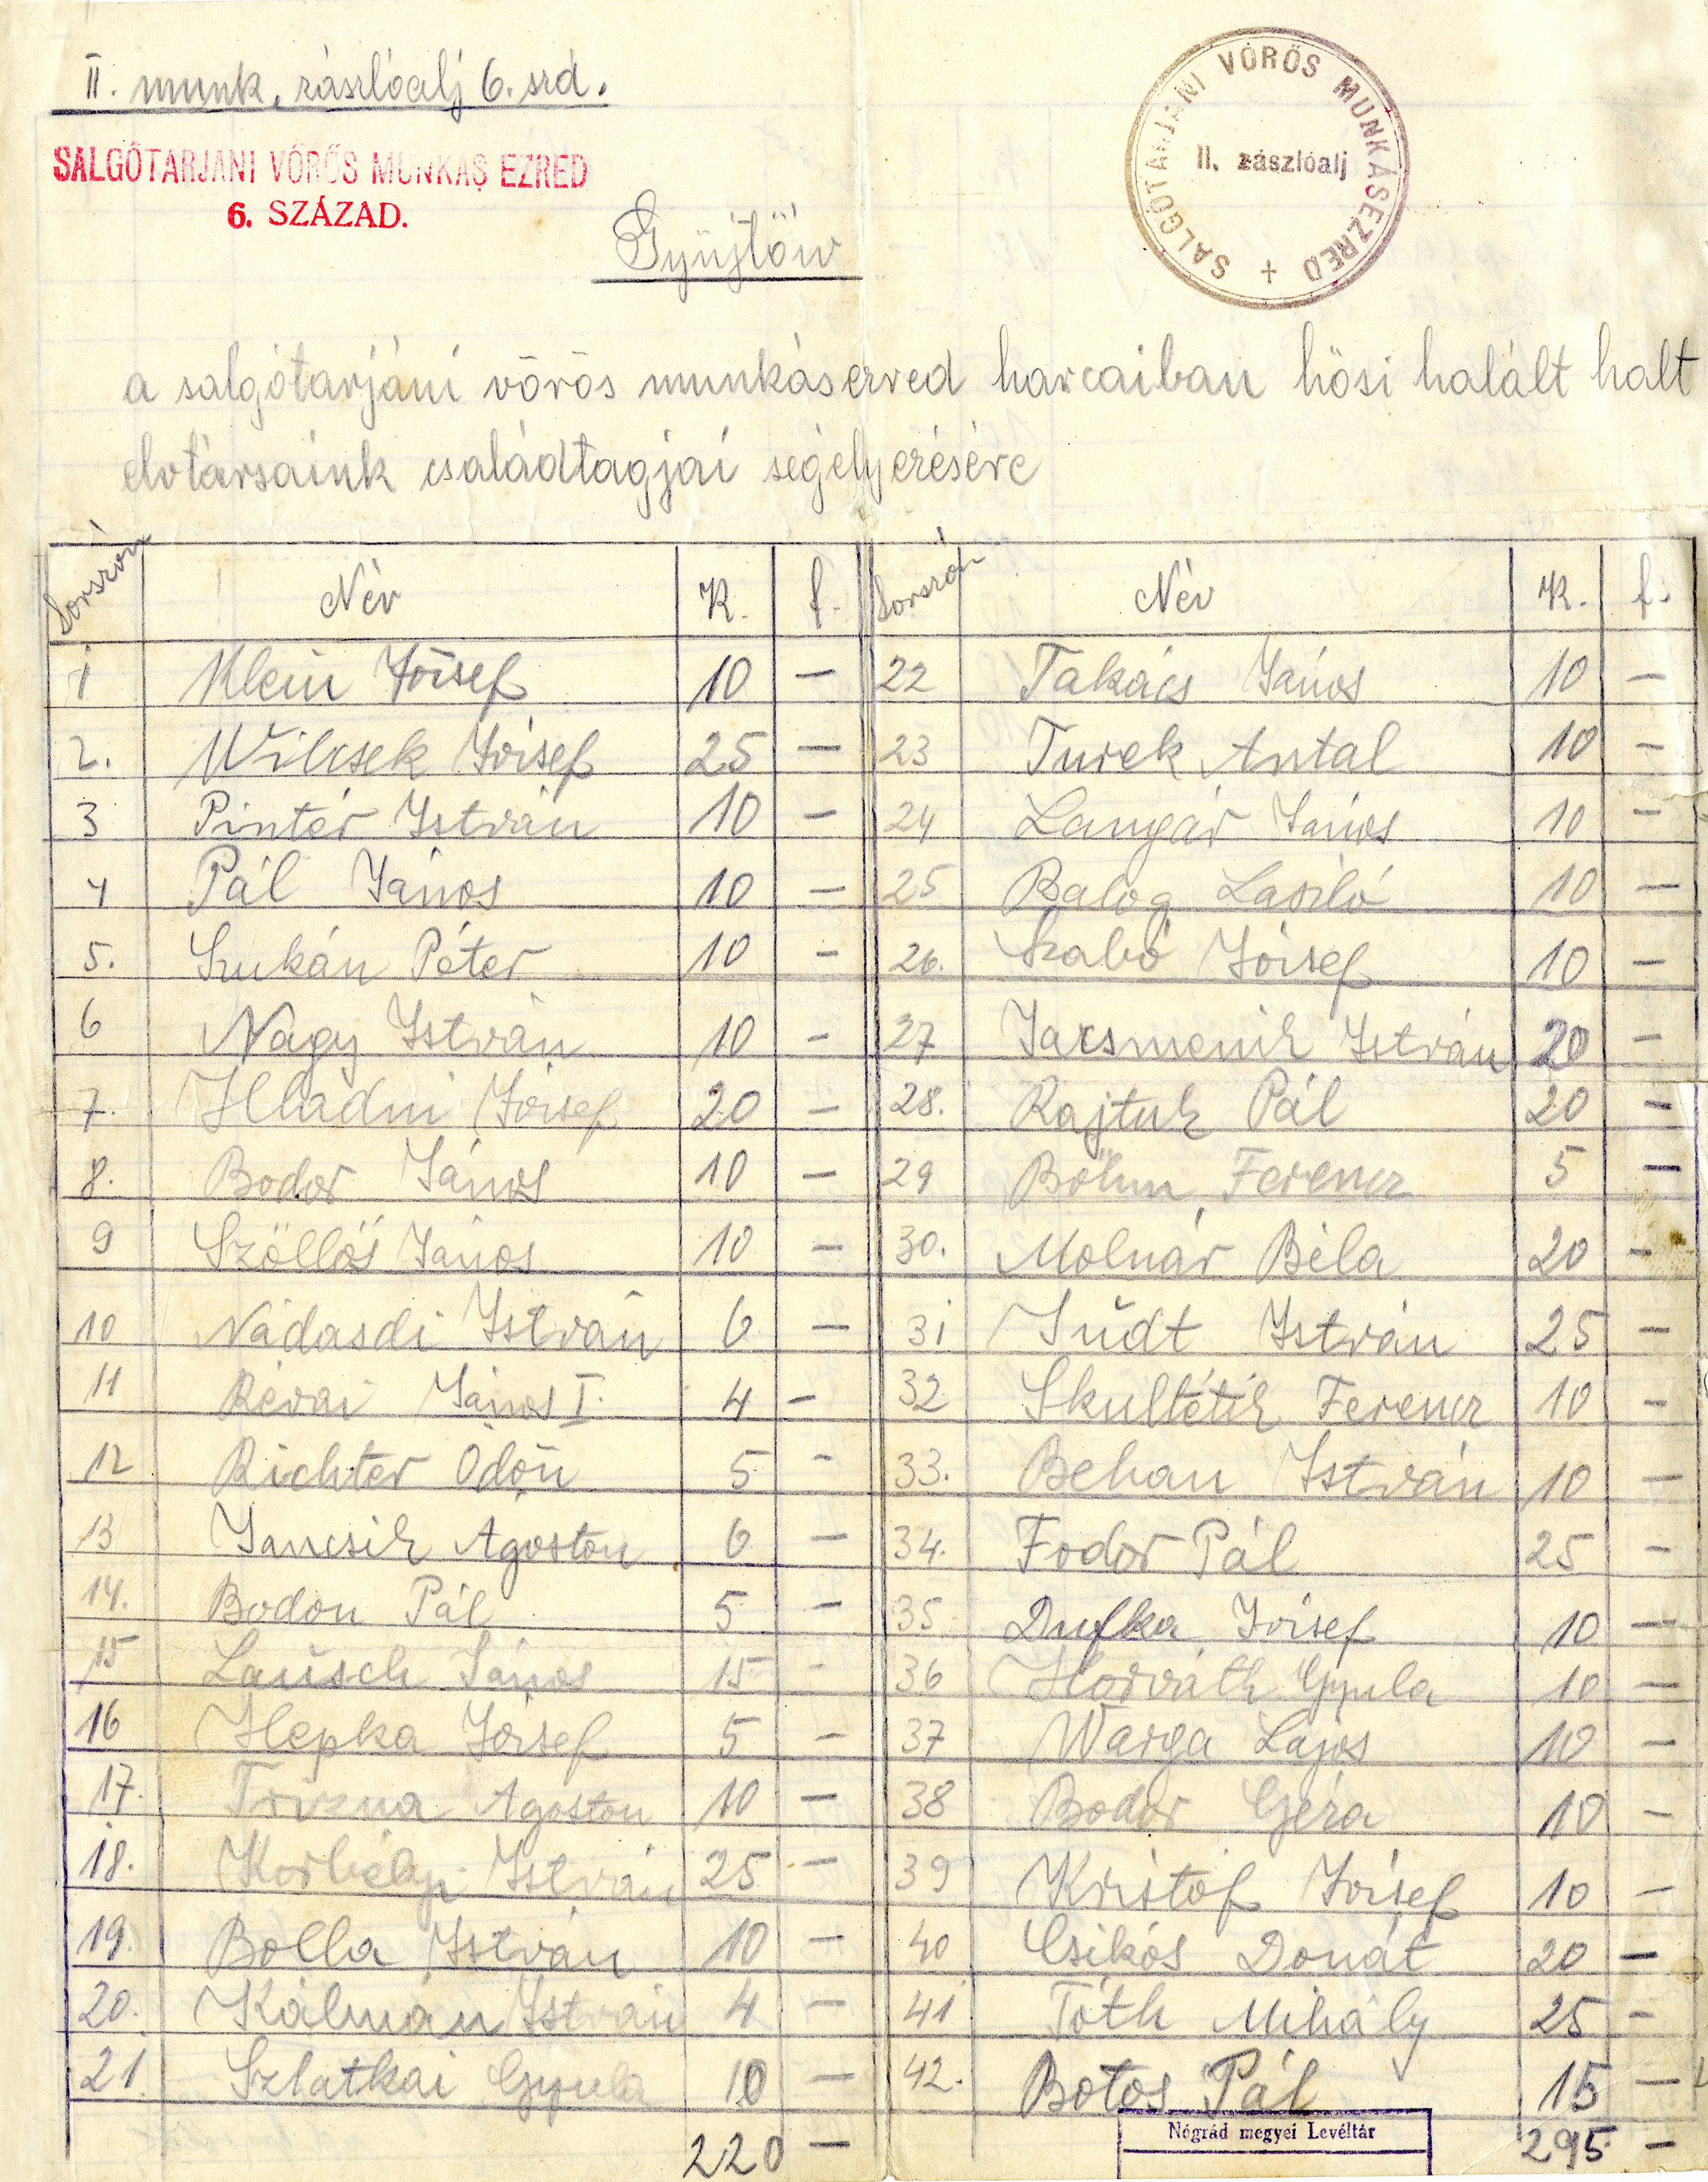 II. munk. zászlóalj 6. szd.
SALGÓTARJÁNI VÖRÖS MUNKÁS EZRED
6. SZÁZAD.
SALGÓTARJÁNI VÖRÖS MUNKÁSEZRED
II. zászlóalj
Gyüjtőív
a salgótarjáni vörös munkásezred harcaiban hősi halált halt
elvtársaink családtagjai segélyezésére
Sorszám Név K. f. Sorszám Név K. f.
1 Klein József 10 — 22 Takács János 10 —
2. Wilcsek József 25 — 23 Turek Antal 10 —
3 Pintér István 10 — 24 Langár János 10 —
4 Pál János 10 — 25 Balog László 10 —
5. Szukán Péter 10 — 26. Szabó József 10 —
6 Nagy István 10 — 27 Jacsmenik István 20 —
7. Hladni József 20 — 28. Rajtuk Pál 20 —
8. Bodor János 10 — 29 Böhm Ferencz 5 —
9 Szöllős János 10 — 30. Molnár Béla 20 —
10 Nádasdi István 6 — 31 Südt István 25 —
11 Révai János I. 4 — 32 Skultétik Ferencz 10 —
12 Richter Ödön 5 — 33. Behan István 10 —
13 Jancsik Ágoston 6 — 34. Fodor Pál 25 —
14. Bodon Pál 5 — 35 Dufka József 10 —
15 Lausch János 15 — 36 Horváth Gyula 10 —
16 Hepka József 5 — 37 Warga Lajos 10 —
17. Trizna Agoston 10 — 38 Bodor Géza 10 —
18. Korbély István 25 — 39 Kristóf József 10 —
19. Bolla István 10 — 40 Csikós Donát 20 —
20. Kálmán István 4 — 41 Tóth Mihály 25 —
21. Szlatkai Gyula 10 — 42. Botos Pál 15 —
220 — 295 —
Nógrád megyei Levéltár